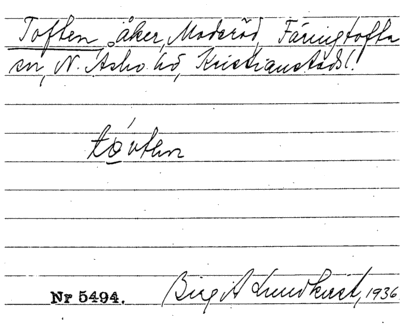 Toften, åker, Moderöd, Färingtofta
sn, N. Åsbo hd, Kristianstads l.
Nr 5494. Birgit Lundkvist, 1936